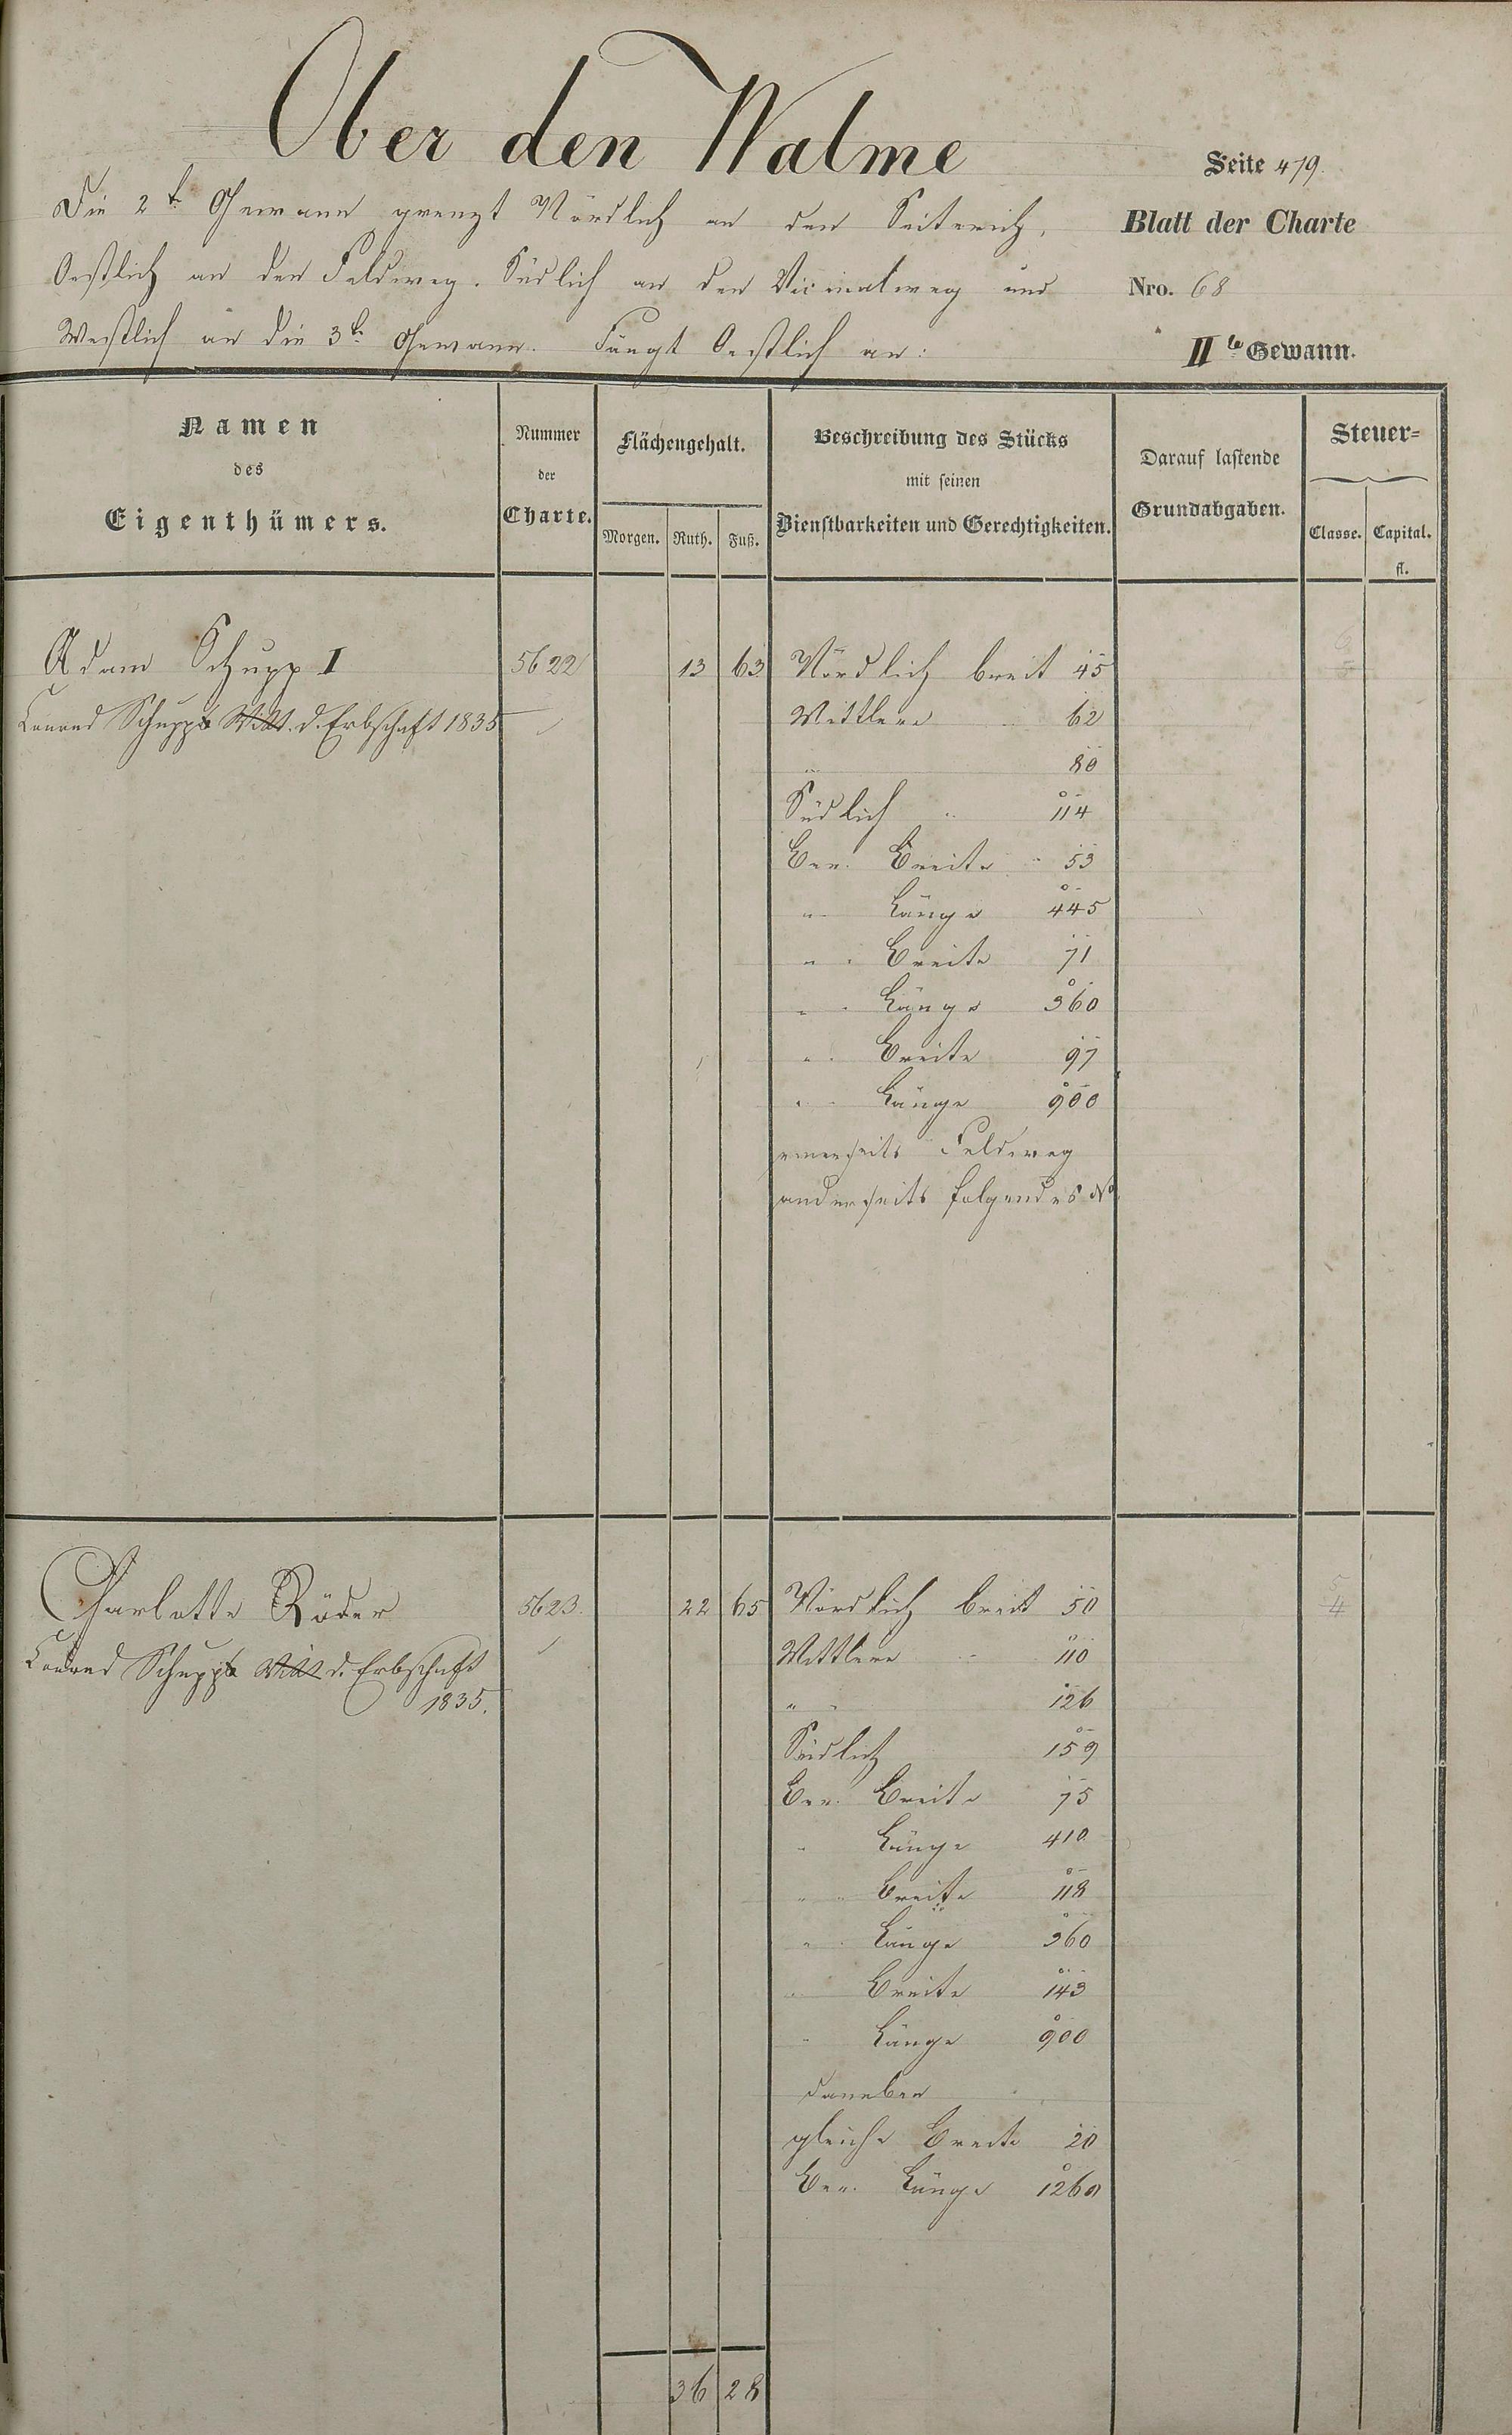 Ober den Walme
Seite 479.
Die 2te Gewann grenzt Nördlich an den Seiterich,
Blatt der Charte
Oestlich an den Feldweg. Südlich an den Vicinalweg und
Nro. 68
Westlich an die 3te Gewann. Fängt Oestlich an:
IIte Gewann.
Namen
des
Eigenthümers.
Nummer
der
Charte.
Flächengehalt.
Morgen. Ruth. Fuß.
Beschreibung des Stücks
mit seinen
Dienstbarkeiten und Gerechtigkeiten.
Darauf lastende
Grundabgaben.
Steuer=
Classe. Capital.
fl.
Adam Schupp I 5622 13 63 Nördlich breit 45
Conrad Schupps Witt. d. Erbschaft 1835 Mittlere 62
" 80
Südlich " 114
Ber. Breite " 53
" Länge 445
" Breite 71
" Länge 360
" Breite 97
" Länge 900
einerseits Feldweg
anderseits folgendes No
Charlotte Röder 5623. 22 65 Nördlich breit 50
Conrad Schupps Witt d. Erbschaft Mittlere 110
1835. " 126
Südlich 159
Ber. Breite 75
" Länge 410
" Breite 118
" Länge 360
" Breite 143
" Länge 900
daneben
gleiche Breite 20
Ber. Länge 1260
36 28